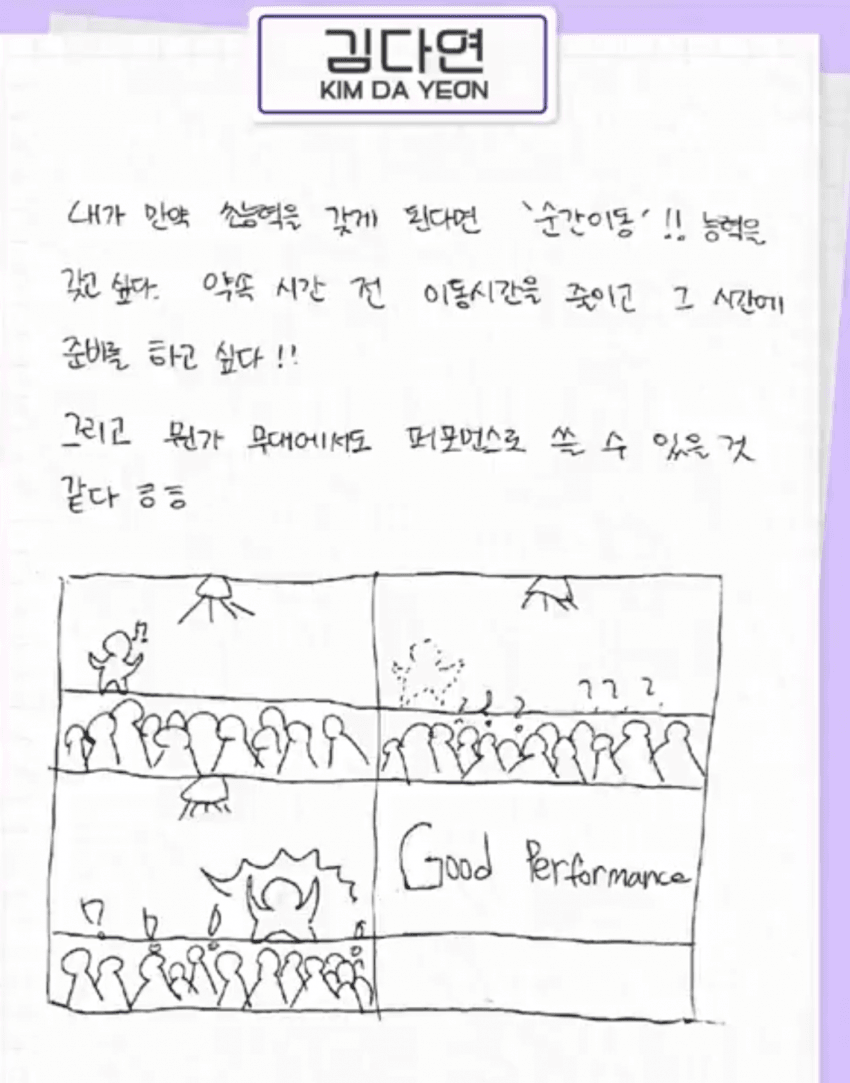 김다연
KIM DA YEON
내가 만약 초능력을 갖게 된다면 '순간이동' !! 능력을
갖고 싶다. 약속 시간 전 이동시간을 줄이고 그 시간에
준비를 하고 싶다 !!
그리고 뭔가 무대에서도 퍼포먼스로 쓸 수 있을 것
같다 ㅎㅎ
? ! ? ? ? ?
! ! ! !
Good Performance